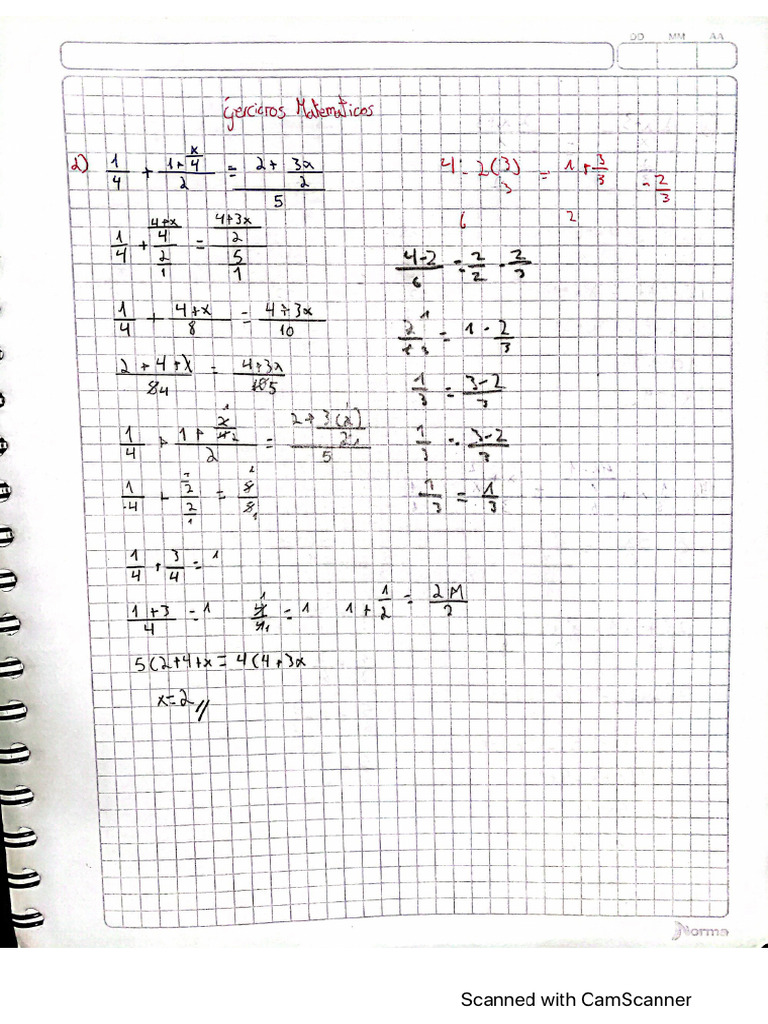 DD MM AA
Ejercicios Matemáticos
1/4 + (1+x/4)/2 = (2+3x/2)/5
1/4 + ((4+x)/4)/(2/1) = ((4+3x)/2)/(5/1)
1/4 + (4+x)/8 = (4+3x)/10
(2+4+x)/84 = (4+3x)/105
1/4 + (1+x/42)/2 = (2+3(2)/21)/5
1/4 = 8/8
1/4 + 3/4 = 1
(1+3)/4 = 1 4/4 = 1 1 + 1/2 =
5(2+4+x = 4(4+3x
x=2//
4 - 2(3)/3 = 1 + 3/3 - 2/3
6 2
(4-2)/6 = 2/2 - 2/3
= 1 - 2/3
1/3 = (3-2)/3
1/3 = (3-2)/3
1/3 = 1/3
Norma
Scanned with CamScanner